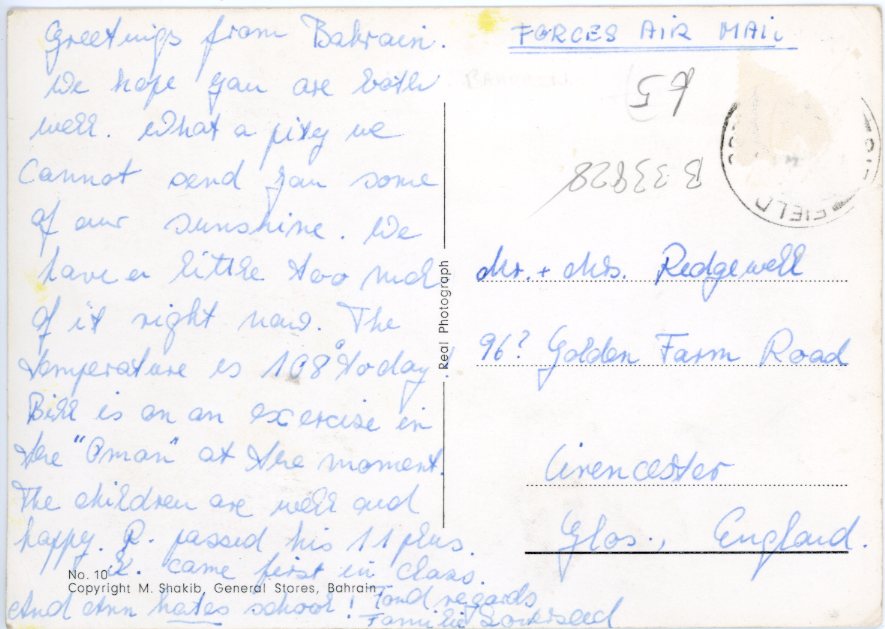 Greetings from Bahrain.
We hope you are both
well. What a pity we
Cannot send you some
of our sunshine. We
have a little too much
of it right now. The
temperature is 108° today!
Bill is on an exercise in
the "Oman" at the moment.
The children are well and
happy. P. passed his 11 plus.
K. came first in class.
And Ann hates school! Fond regards
No. 10
Copyright M. Shakib, General Stores, Bahrain
Real Photograph
FORCES AIR MAIL
BAHRAIN
£5
B33928
FIELD
Mr. + Mrs. Redgewell
96? Golden Farm Road
Cirencester
Glos., England.